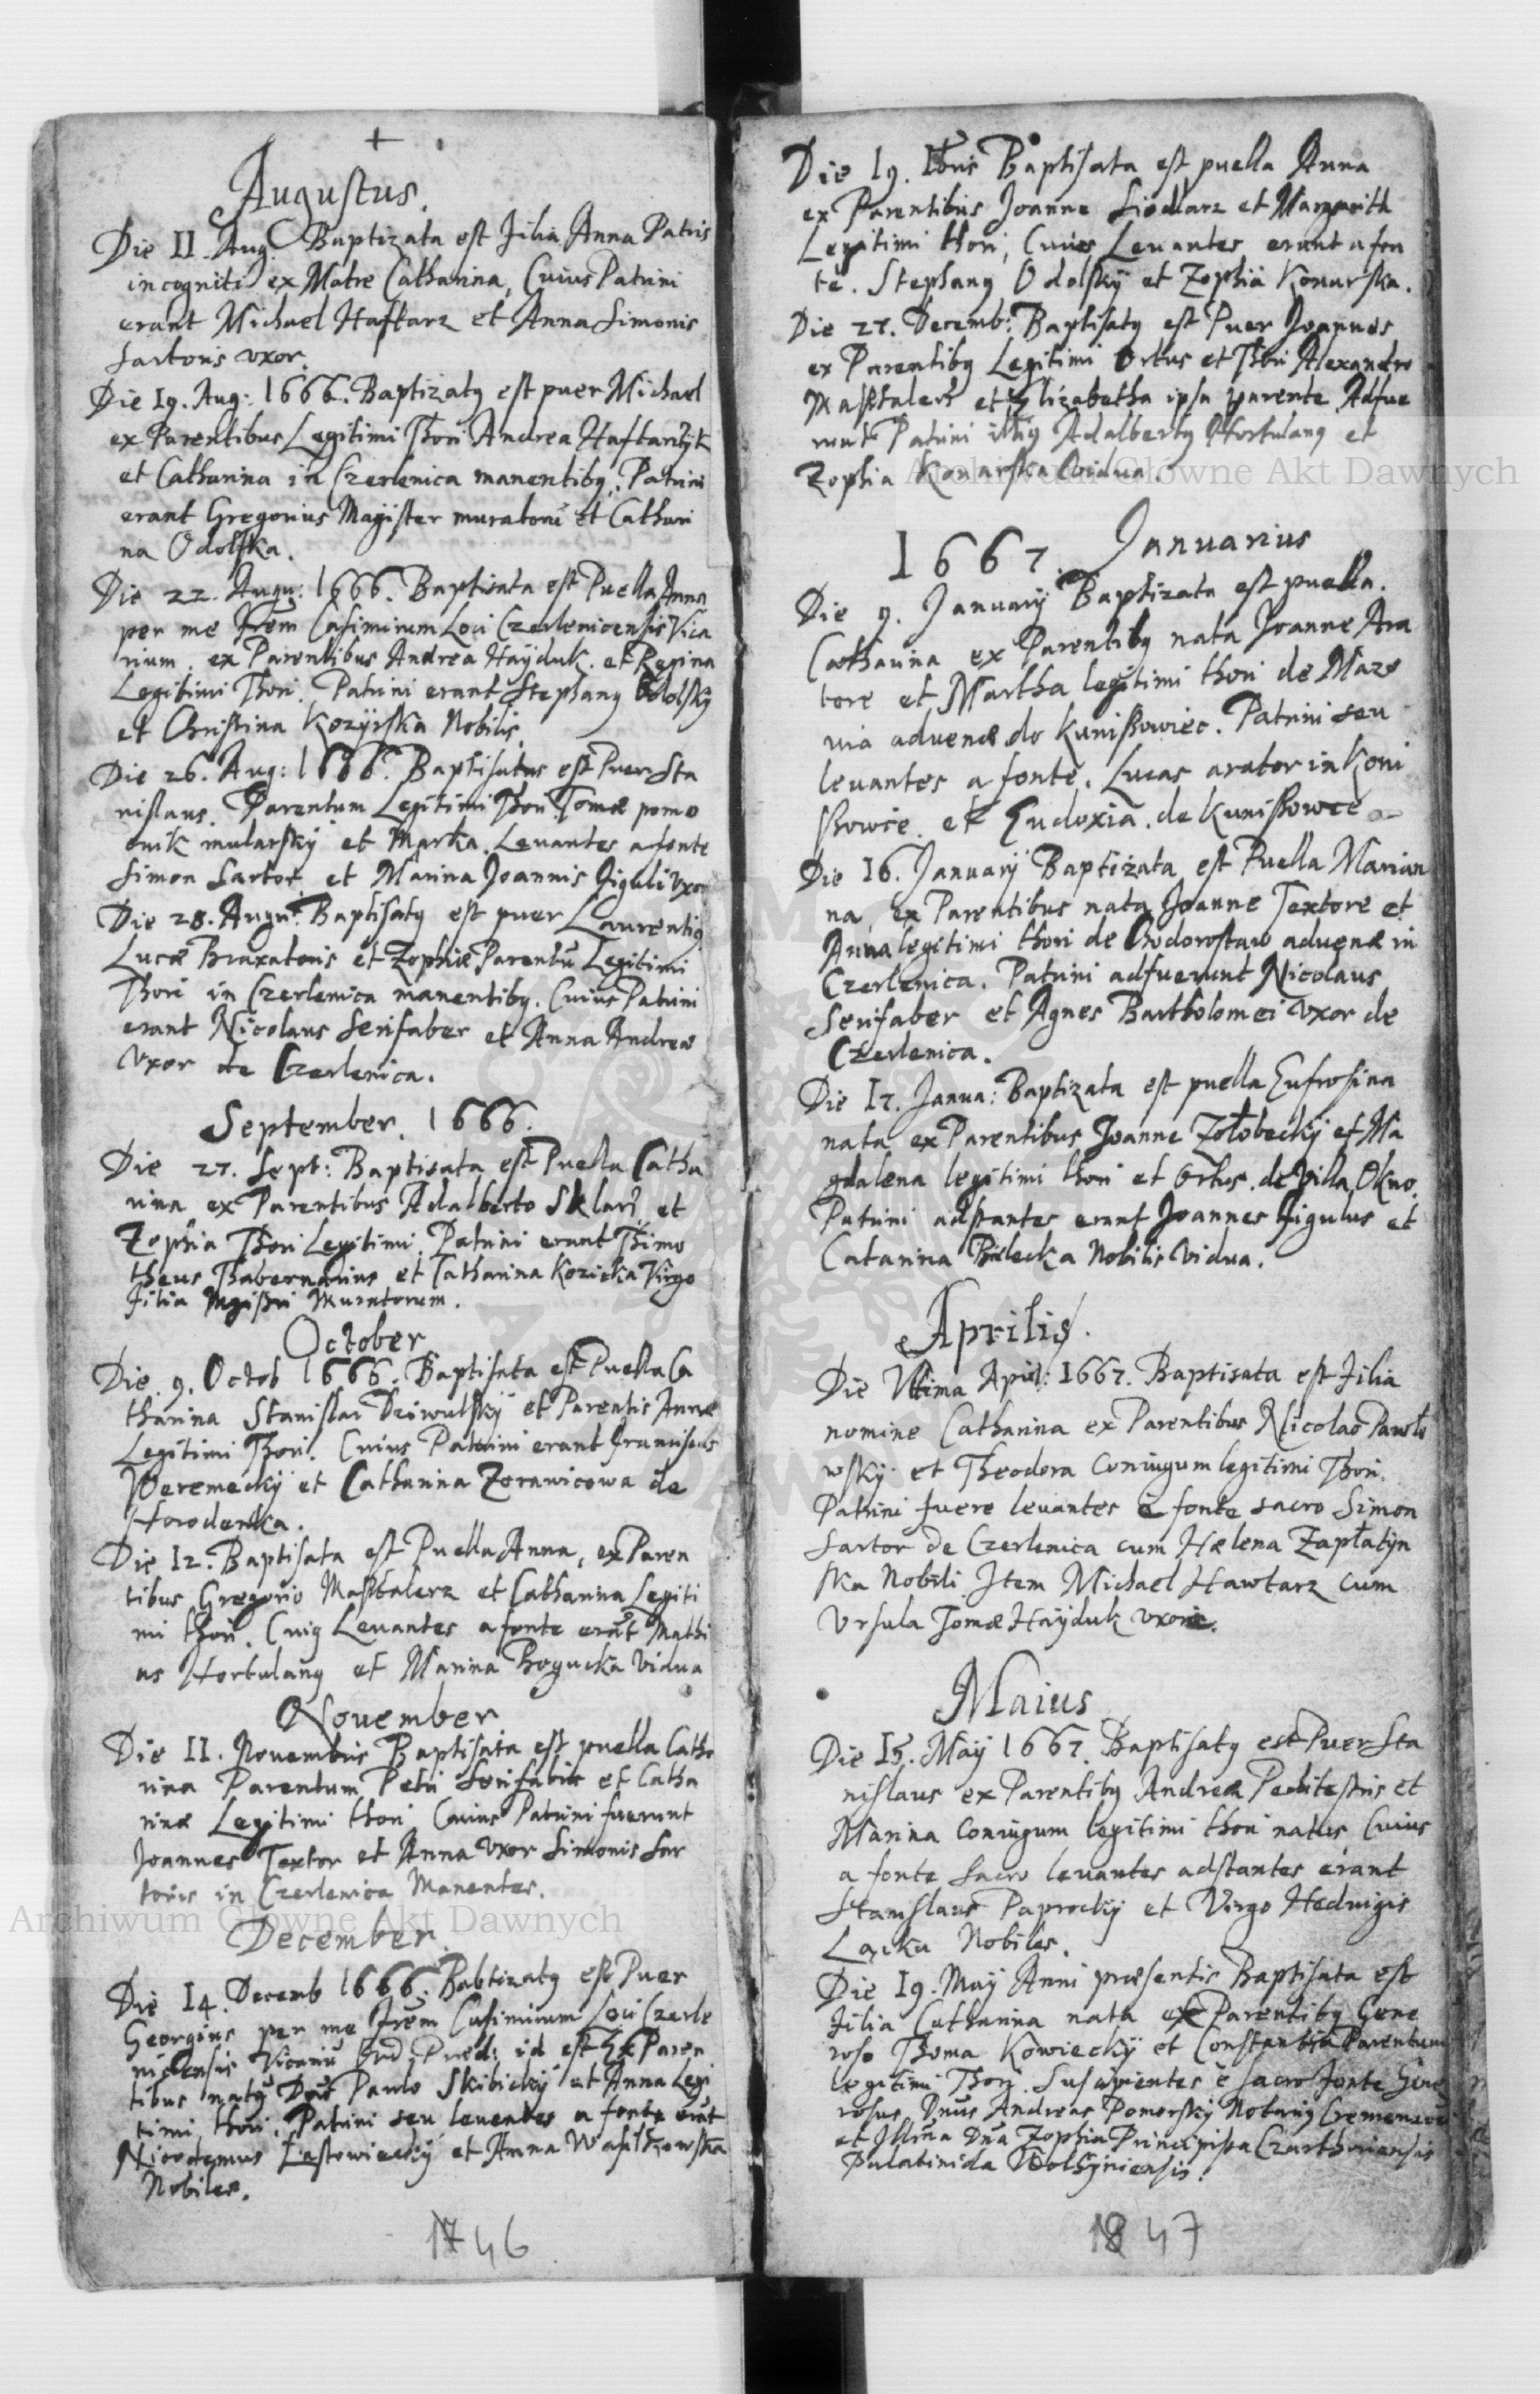 +
Augustus.
Die 11. Aug. Baptizata est Filia Anna Patris
incogniti ex Matre Catharina, Cuius Patrini
erant Michael Haftarz et Anna Simonis
Sartoris vxor.
Die 19. Aug: 1666. Baptizatg est puer Michael
ex Parentibus Legitimi Thori Andrea Haftarczyk
et Catharina in Czerlenica manentibg. Patrini
erant Gregorius Magister muratorū et Cathari
na Odolska.
Die 22. Augu: 1666. Baptisata est Puella Anna
per me Frem Casimirum Loci Czerlenicensis Vica
rium. ex Parentibus Andrea Haÿduk. et Regina
Legitimi Thori. Patrini erant Stephang Odolskÿ
et Christina Kozÿrska Nobilis.
Die 26. Aug: 1666. Baptisatus est Puer Sta
nislaus. Parentum Legitimi Thori Tomæ pomo
cnik mularskÿ et Marta. Leuantes a fonte
Simon Sartor et Marina Joannis Figuli Vxor
Die 28. Augu: Baptisatg est puer Laurentig
Lucæ Braxatoris et Zophiæ Parentū Legitimi
Thori in Czerlenica manentibg. Cuius Patrini
erant Nicolaus Serifaber et Anna Andreæ
Vxor de Czerlenica.
September. 1666.
Die 27. Sept: Baptisata est Puella Catha
rina ex Parentibus Adalberto Sklarz et
Zophia Thori Legitimi. Patrini erant Thimo
theus Thabernarius et Catharina Kozicka Virgo
Filia Mgistri Muratorum.
October
Die 9. Octob 1666. Baptisata est Puella Ca
tharina Stanislai Dziwulskÿ et Parentis Annæ
Legitimi Thori. Cuius Patrini erant Franciscus
Weremeckÿ et Catharina Zorawicowa de
Horodenka.
Die 12. Baptisata est Puella Anna, ex Paren
tibus Gregorio Mastalerz et Catharina Legiti
mi thori. Cuig Leuantes a fonte erāt Mathi
as Hortulang et Marina Bogucka Vidua
November
Die 11. Novembris Baptisata est puella Catha
rina Parentum Petri Serifabri et Catha
rinæ Legitimi thori Cuius Patrini fuerunt
Joannes Textor et Anna Vxor Simonis Sar
toris in Czerlenica Manentes.
December.
Die 14. Decemb 1666. Babtizatg est Puer
Georgius per me Frem Casimirum Loci Czerle
nicensis Vicariū Ord. Præd: id est Ex Paren
tibus natg Dno Pawlo Skibickÿ et Anna Legi
timi thori. Patrini seu leuantes a fonte erāt
Nicodemus Łastowieckÿ et Anna Wasilkowska
Nobiles.
1746
Die 19. Xbris Baptisata est puella Anna
ex Parentibus Joanne Siodlarz et Margarith
Legitimi thori, Cuius Leuantes erant a fon
te. Stephang Odolskÿ et Zophia Konarska.
Die 27. Decemb: Baptisatg est Puer Joannes
ex Parentibg Legitimi Ortus et Thori Alexandro
Mastalerz et Elizabetha ipsa parente Adfue
runt Patrini illig Adalbertg Hortulang et
Zophia Konarska Vidua.
1667. Januarius
Die 9. Januarÿ Baptizata est puella.
Catharina ex Parentibg nata Joanne Ara
tore et Martha legitimi thori de Mazo
uia aduenæ do Kunissowiec. Patrini seu
leuantes a fonte. Lucas arator in Koni
ssowce et Eudoxia de Kunissowce
Die 16. Januarÿ Baptizata est Puella Marian
na ex Parentibus natg Joanne Textore et
Anna legitimi thori de Chodorostaw aduenæ in
Czerlenica. Patrini adfuerunt Nicolaus
Serifaber et Agnes Bartholomei Vxor de
Czerlenica.
Die 17. Janua: Baptizata est puella Eufrosina
nata ex Parentibus Joanne Zołobeckÿ et Ma
gdalena legitimi thori et Ortus. de Villa Okno.
Patrini adstantes erant Joannes Figulus et
Catarina Bilecka Nobilis Vidua.
Aprilis.
Die Vltima April: 1667. Baptisata est Filia
nomine Catharina ex Parentibus Nicolao Pawło
wskÿ et Theodora Coniugum legitimi Thori.
Patrini fuere leuantes è fonte sacro Simon
Sartor de Czerlenica cum Hælena Zapłatÿn
ska Nobili Item Michael Hawtarz cum
Vrsula Tomæ Haÿduk vxore.
Maius
Die 15. Maÿ 1667. Baptisatg est Puer Sta
nislaus ex Parentibg Andrea Peditestris et
Marina Coniugum legitimi thori natus Cuius
a fonte Sacro leuantes adstantes erant
Stanislaus Paprockÿ et Virgo Heduigis
Lacka Nobiles.
Die 19. Maÿ Anni præsentis Baptisata est
Filia Catharina nata ex Parentibg Gene
roso Thoma Kowieckÿ et Constantia Parentum
legitimi Thori. Suscipientes è sacro fonte Gene
rosus Dnus Andreas Pomorskÿ Notarig Cremenece
et Illma Dna Zophia Principissa Czarthoriensis
Palatinida Wolhÿniensis.
1847
Archiwum Główne Akt Dawnych
Archiwum Główne Akt Dawnych